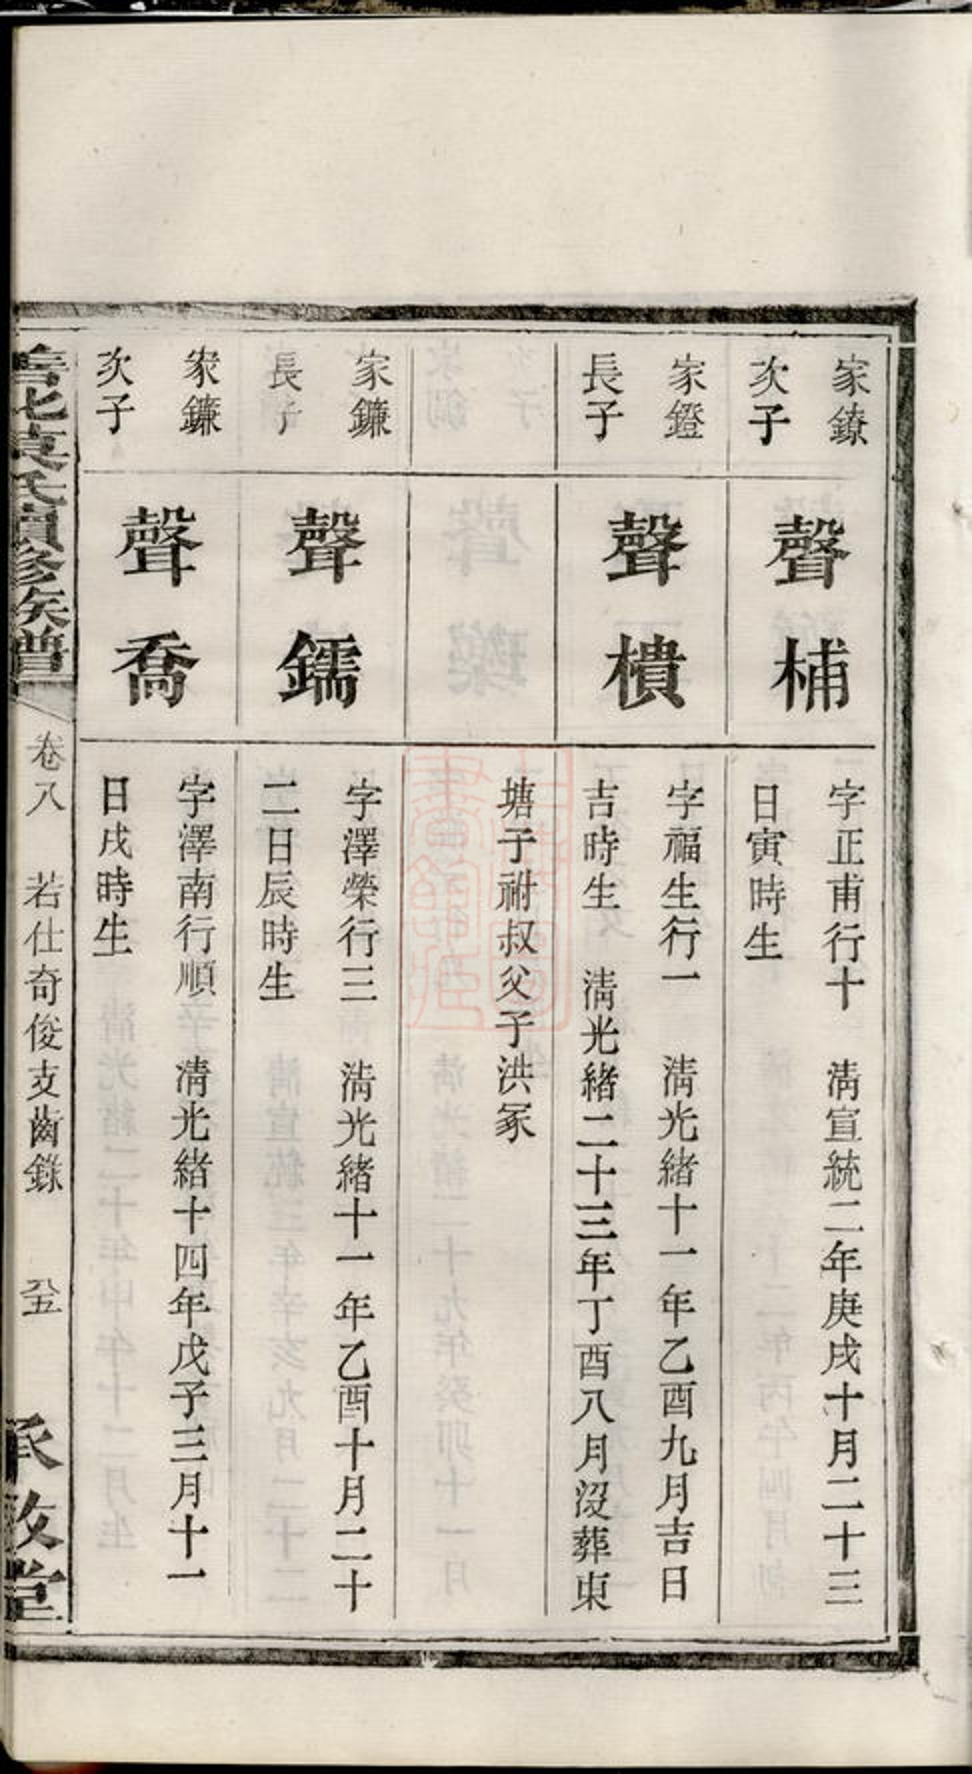 家鐐
次子
聲
補
字正甫行十 清宣統二年庚戌十月二十三
日寅時生
家鐙
長子
聲
樻
字福生行一 清光緒十一年乙酉九月吉日
吉時生 清光緒二十三年丁酉八月沒葬東
塘子祔叔父子洪冢
家鐮
長子
聲
鑐
字澤榮行三 清光緒十一年乙酉十月二十
二日辰時生
家鐮
次子
聲
喬
字澤南行順 清光緒十四年戊子三月十一
日戌時生
善化袁氏續修族譜
卷八 若仕奇俊支齒錄 八五
承啟堂